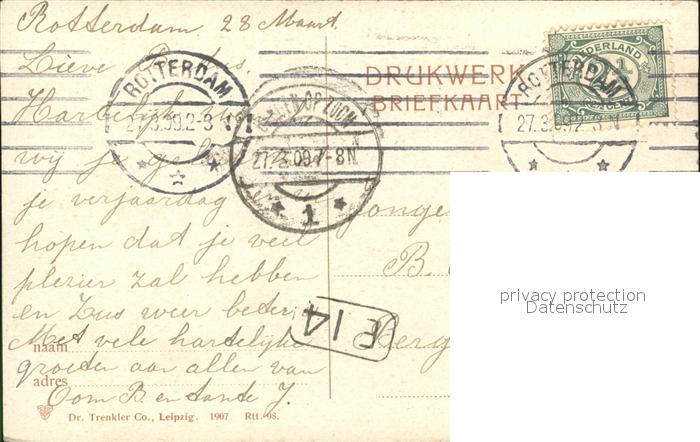 Rotterdam 28 Maart
Lieve
DRUKWERK
BRIEFKAART
NEDERLAND
ROTTERDAM
27.3.09.2-3 N
BERGEN OP ZOOM
27.3.09.7-8N
1
ROTTERDAM
27.3.09.2-3 N
Hartelijk
wij je
je verjaardag
hopen dat je veel
plezier zal hebben
en Zus weer beter.
Met vele hartelijke
naam
groeten aan allen van
adres
Oom B. en tante J.
Jonge
B.
Berg
E 14
privacy protection
Datenschutz
Dr. Trenkler Co., Leipzig. 1907. Rtt.-98.